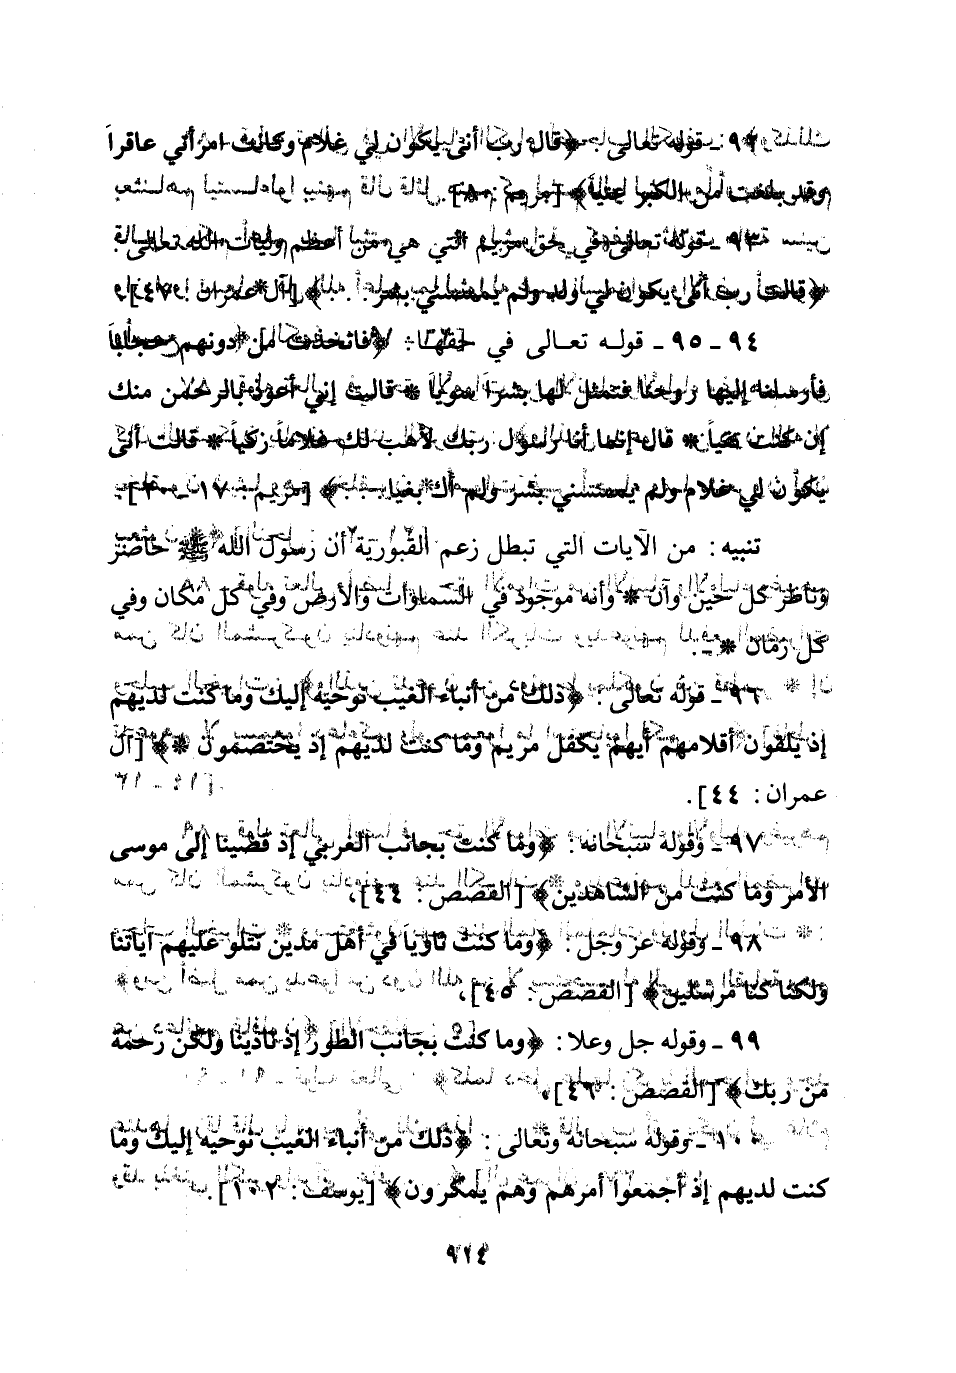 ٩٢ ـ قوله تعالى: ﴿قال رب أنى يكون لي غلام وكانت امرأتي عاقراً
وقد بلغت من الكبر عتياً﴾ [مريم: ٨].
٩٣ ـ قوله تعالى في حق مريم التي هي من أعظم وليات الله تعالى:
﴿قالت رب أنى يكون لي ولد ولم يمسسني بشر . . . ﴾ [آل عمران: ٤٧].
٩٤ ـ ٩٥ ـ قوله تعالى في حقها: ﴿فاتخذت من دونهم حجاباً
فأرسلنا إليها روحنا فتمثل لها بشراً سوياً * قالت إني أعوذ بالرحمن منك
إن كنت تقياً * قال إنما أنا رسول ربك لأهب لك غلاماً زكياً * قالت أنى
يكون لي غلام ولم يمسسني بشر ولم أك بغياً . . . ﴾ [مريم: ١٧ ـ ٢٠].
تنبيه: من الآيات التي تبطل زعم القبورية أن رسول الله ﷺ حاضر
وناظر كل حين وآن * وأنه موجود في السماوات والأرض وفي كل مكان وفي
كل زمان * ـ.
٩٦ ـ قوله تعالى: ﴿ذلك من أنباء الغيب نوحيه إليك وما كنت لديهم
إذ يلقون أقلامهم أيهم يكفل مريم وما كنت لديهم إذ يختصمون *﴾ [آل
عمران: ٤٤].
٩٧ ـ وقوله سبحانه: ﴿وما كنت بجانب الغربي إذ قضينا إلى موسى
الأمر وما كنت من الشاهدين﴾ [القصص: ٤٤]،
٩٨ ـ وقوله عز وجل: ﴿وما كنت ثاوياً في أهل مدين تتلو عليهم آياتنا
ولكنا كنا مرسلين﴾ [القصص: ٤٥]،
٩٩ ـ وقوله جل وعلا: ﴿وما كنت بجانب الطور إذ نادينا ولكن رحمة
من ربك﴾ [القصص: ٤٦]،
١٠٠ ـ وقوله سبحانه وتعالى: ﴿ذلك من أنباء الغيب نوحيه إليك وما
كنت لديهم إذ أجمعوا أمرهم وهم يمكرون﴾ [يوسف: ١٠٢].
٩٢٤